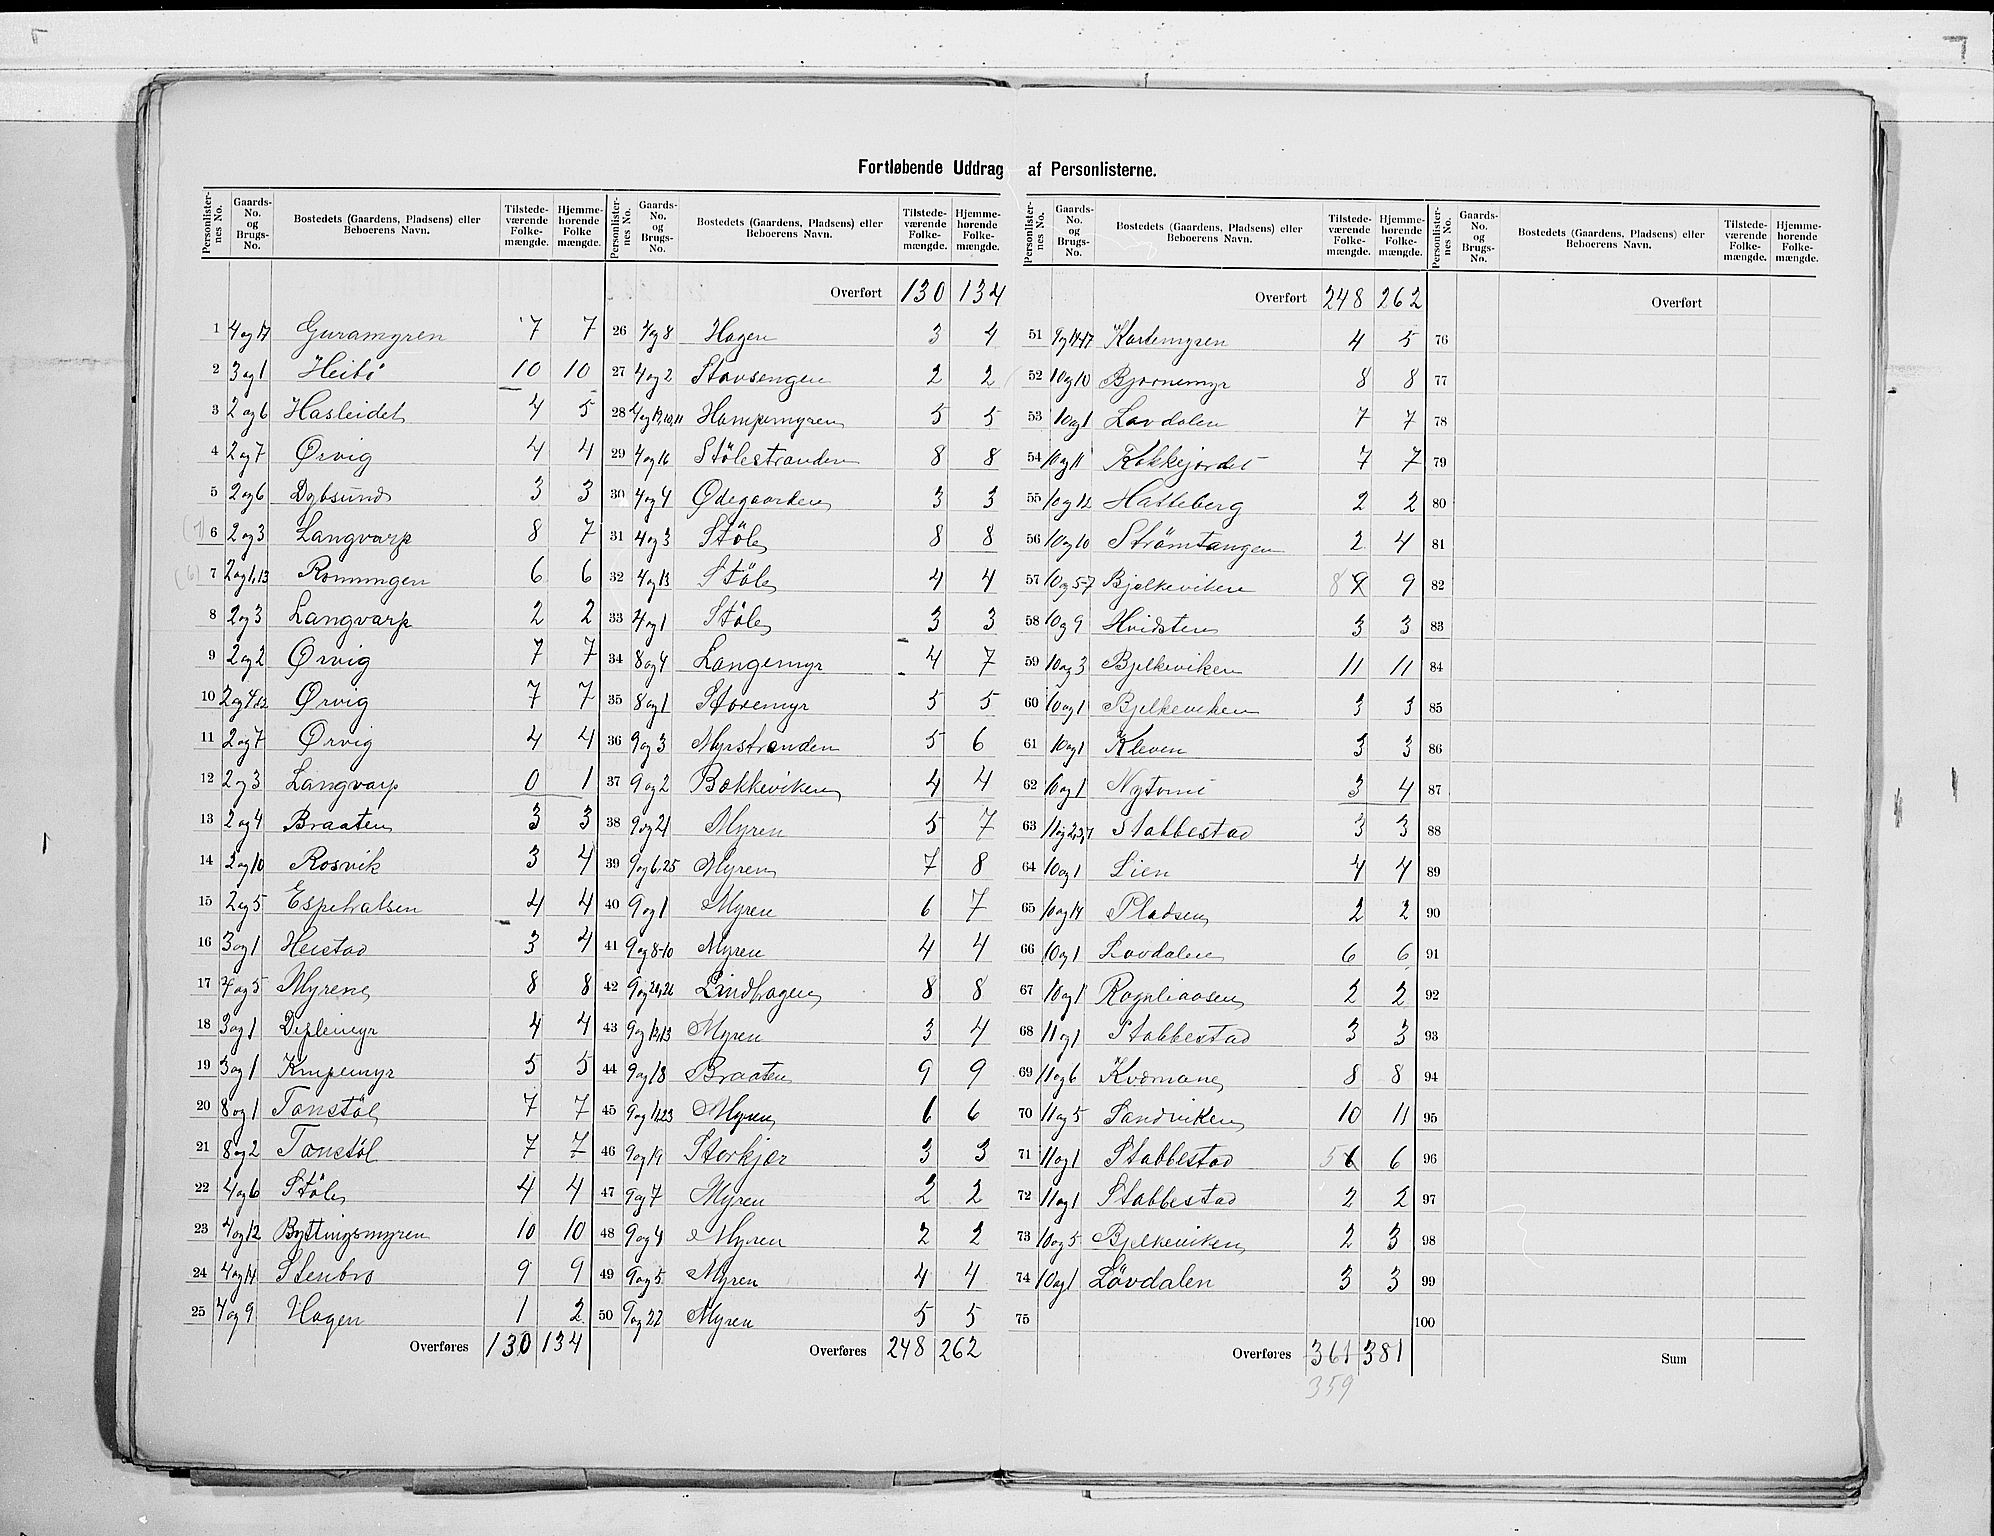 Fortløbende Uddrag af Personlisterne.
Personlister-nes No. Gaards-No. og Brugs-No. Bostedets (Gaardens, Pladsens) eller Beboerens Navn. Tilstede-værende Folke-mængde. Hjemme-hørende Folke mængde.
1 4og17 Guramyren 7 7
2 3og1 Heibö 10 10
3 2og6 Hasleidet 4 5
4 2og7 Ørvig 4 4
5 2og6 Dybsund 3 3
(7) 6 2og3 Langvarp 8 7
(6) 7 2og1,13 Ronningen 6 6
8 2og3 Langvarp 2 2
9 2og2 Ørvig 7 7
10 2og4,12 Ørvig 7 7
11 2og7 Ørvig 4 4
12 2og3 Langvarp 0 1
13 2og4 Braaten 3 3
14 2og10 Rosvik 3 4
15 2og5 Espehalsen 4 4
16 3og1 Heistad 3 4
17 4og5 Myrene 8 8
18 3og1 Deplemyr 4 4
19 3og1 Knipemyr 5 5
20 8og1 Tonstöl 7 7
21 8og2 Tonstöl 7 7
22 4og6 Stöle 4 4
23 4og12 Byttingsmyren 10 10
24 4og14 Stenbro 9 9
25 4og9 Hagen 1 2
Overføres 130 134
Personlister-nes No. Gaards-No. og Brugs-No. Bostedets (Gaardens, Pladsens) eller Beboerens Navn. Tilstede-værende Folke-mængde. Hjemme-hørende Folke-mængde.
Overført 130 134
26 4og8 Hagen 3 4
27 4og2 Stavsengen 2 2
28 4og17,10,11 Hampemyren 5 5
29 4og16 Stölestranden 8 8
30 4og4 Ødegaarden 3 3
31 4og3 Stöle 8 8
32 4og13 Stöle 4 4
33 4og1 Stöle 3 3
34 8og4 Langemyr 4 7
35 8og1 Storemyr 5 5
36 9og3 Myrstranden 5 6
37 9og2 Bakkeviken 4 4
38 9og21 Myren 5 7
39 9og6,25 Myren 7 8
40 9og1 Myren 6 7
41 9og8-10 Myren 4 4
42 9og24,26 Lindhagen 8 8
43 9og12,13 Myren 3 4
44 9og18 Braaten 9 9
45 9og11,23 Myren 6 6
46 9og19 Storkjær 3 3
47 9og7 Myren 2 2
48 9og4 Myren 2 2
49 9og5 Myren 4 4
50 9og22 Myren 5 5
Overføres 248 262
Personlister-nes No. Gaards-No. og Brugs-No. Bostedets (Gaardens, Pladsens) eller Beboerens Navn. Tilstede-værende Folke-mængde. Hjemme-hørende Folke-mængde.
Overført 248 262
51 Kortemyren 4 5
52 10og10 Bjornemyr 8 8
53 10og1 Lovdalen 7 7
54 10og11 Kokkejordet 7 7
55 10og12 Hatteberg 2 2
56 10og10 Strömtangen 2 4
57 10og5-7 Bjelkeviken 8 9 9
58 10og9 Hvidsten 3 3
59 10og3 Bjelkeviken 11 11
60 10og1 Bjelkeviken 3 3
61 10og1 Kleven 3 3
62 10og1 3 4
63 11og2,3,7 Stabbestad 3 3
64 10og1 Lien 4 4
65 10og14 Pladsen 2 2
66 10og1 Lovdalen 6 6
67 10og1 Rognliaasen 2 2
68 11og1 Stabbestad 3 3
69 11og6 Kvernane 8 8
70 11og5 Sandviken 10 11
71 11og1 Stabbestad 5 6 6
72 11og1 Stabbestad 2 2
73 10og5 Bjelkeviken 2 3
74 10og1 Lövdalen 3 3
75
Overføres 361 381
359
Personlister-nes No. Gaards-No. og Brugs-No. Bostedets (Gaardens, Pladsens) eller Beboerens Navn. Tilstede-værende Folke-mængde. Hjemme-hørende Folke-mængde.
Overført
76
77
78
79
80
81
82
83
84
85
86
87
88
89
90
91
92
93
94
95
96
97
98
99
100
Sum